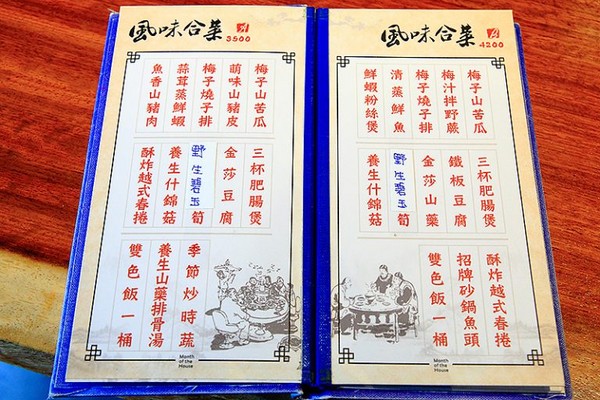 風味合菜 A
3500
梅子山苦瓜
萌味山豬皮
梅子燒子排
蒜茸蒸鮮蝦
魚香山豬肉
三杯肥腸煲
金莎豆腐
野生碧玉筍
養生什錦菇
酥炸越式春捲
季節炒時蔬
養生山藥排骨湯
雙色飯一桶
Month
of the
House
風味合菜 A
4200
梅子山苦瓜
梅汁拌野蕨
梅子燒子排
清蒸鮮魚
鮮蝦粉絲煲
三杯肥腸煲
鐵板豆腐
金莎山藥
野生碧玉筍
養生什錦菇
酥炸越式春捲
招牌砂鍋魚頭
雙色飯一桶
Month
of the
House